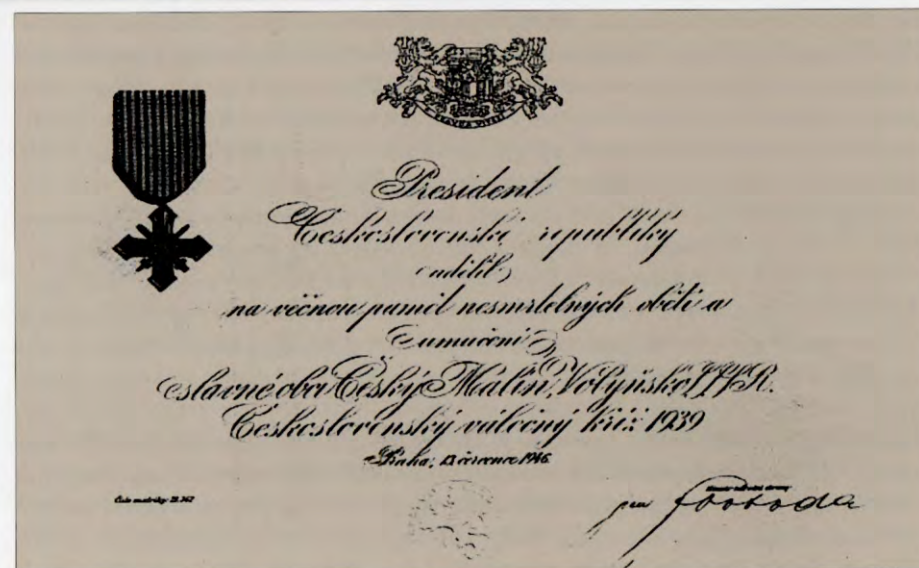 PRAVDA VÍTĚZÍ
President
Československé republiky
udělil
na věčnou paměť nesmrtelných obětí a
umučení
slavné obci Český Malín, Volyňsko,
Československý válečný kříž 1939
Praha, 13. července 1946
Číslo matriky: 28.362
gen Svoboda